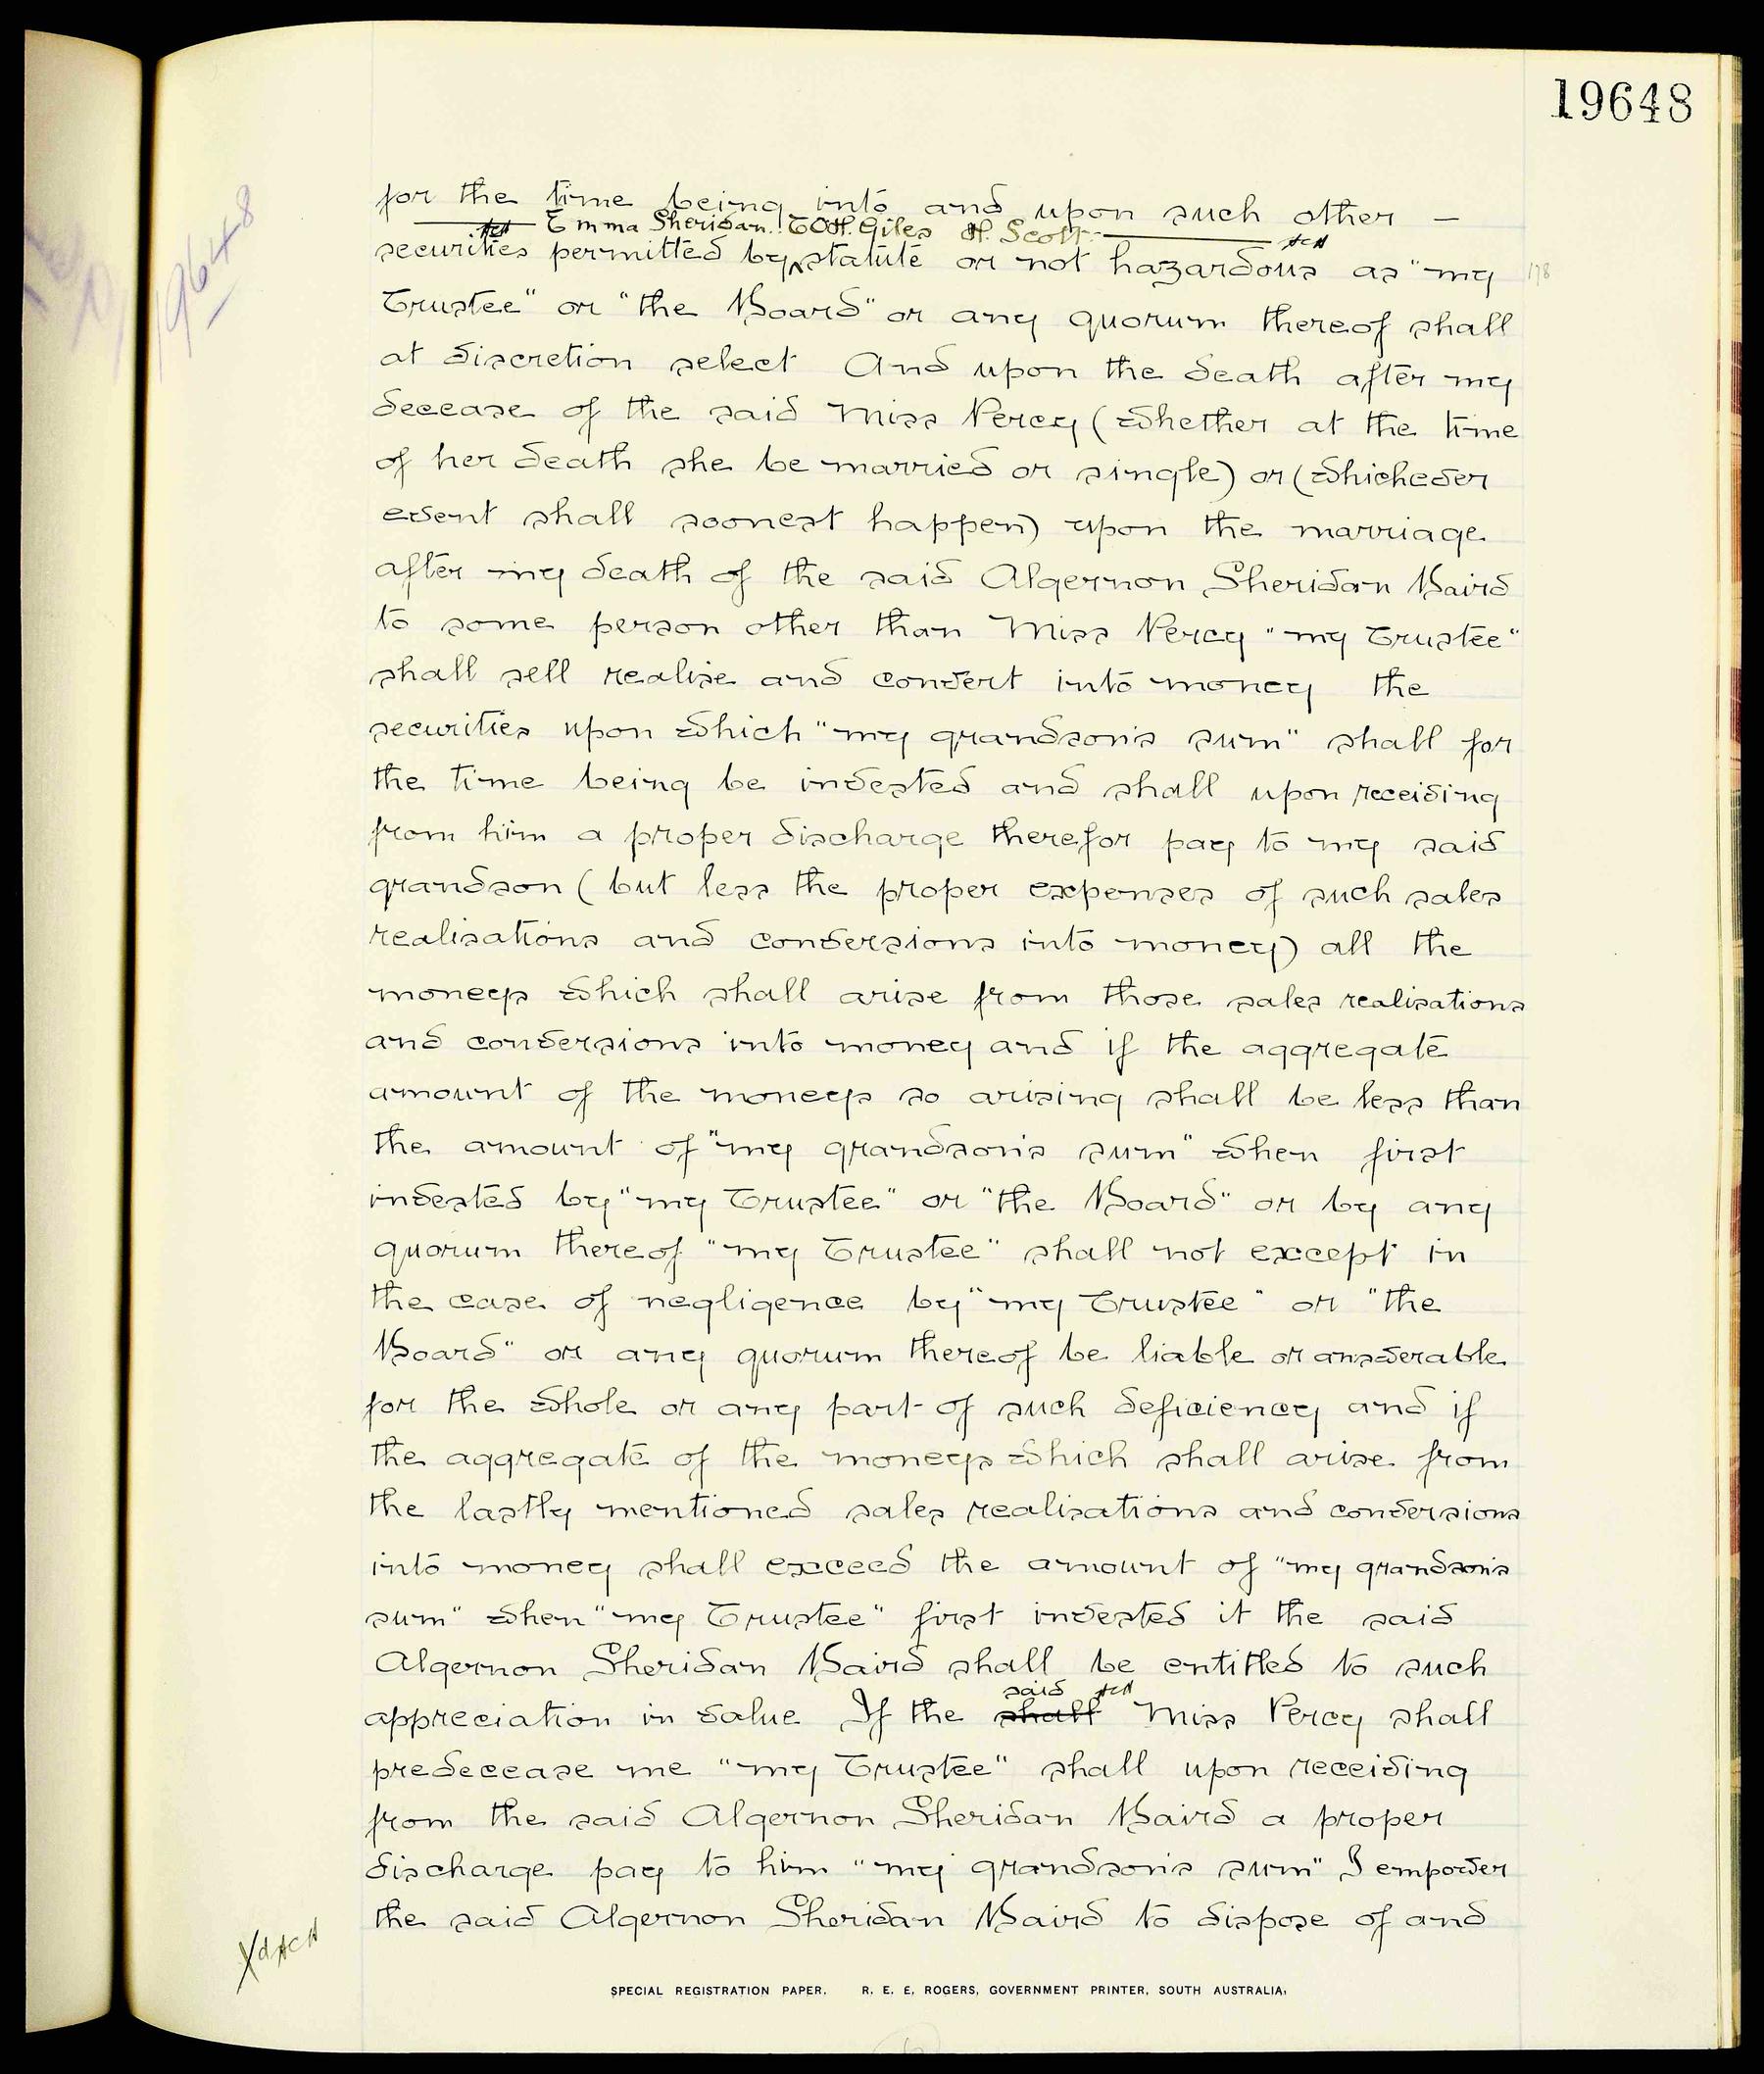 19648
19648
for the time being into and upon such other —
Emma Sheridan. T. O. H. Giles H. Scott.
securities permitted by statute or not hazardous as "my
178
Trustee" or "the Board" or any quorum thereof shall
at discretion select And upon the death after my
decease of the said Miss Percy (whether at the time
of her death she be married or single) or (whichever
event shall soonest happen) upon the marriage
after my death of the said Algernon Sheridan Baird
to some person other than Miss Percy "my Trustee"
shall sell realise and convert into money the
securities upon which "my grandson's sum" shall for
the time being be invested and shall upon receiving
from him a proper discharge therefor pay to my said
grandson (but less the proper expenses of such sales
realisations and conversions into money) all the
moneys which shall arise from those sales realisations
and conversions into money and if the aggregate
amount of the moneys so arising shall be less than
the amount of "my grandson's sum" when first
invested by "my Trustee" or "the Board" or by any
quorum thereof "my Trustee" shall not except in
the case of negligence by "my Trustee" or "the
Board" or any quorum thereof be liable or answerable
for the whole or any part of such deficiency and if
the aggregate of the moneys which shall arise from
the lastly mentioned sales realisations and conversions
into money shall exceed the amount of "my grandson's
sum" when "my Trustee" first invested it the said
Algernon Sheridan Baird shall be entitled to such
said ACH
appreciation in value If the shall Miss Percy shall
predecease me "my Trustee" shall upon receiving
from the said Algernon Sheridan Baird a proper
discharge pay to him "my grandson's sum" I empower
the said Algernon Sheridan Baird to dispose of and
Xd ACH
SPECIAL REGISTRATION PAPER. R. E. E. ROGERS, GOVERNMENT PRINTER, SOUTH AUSTRALIA.